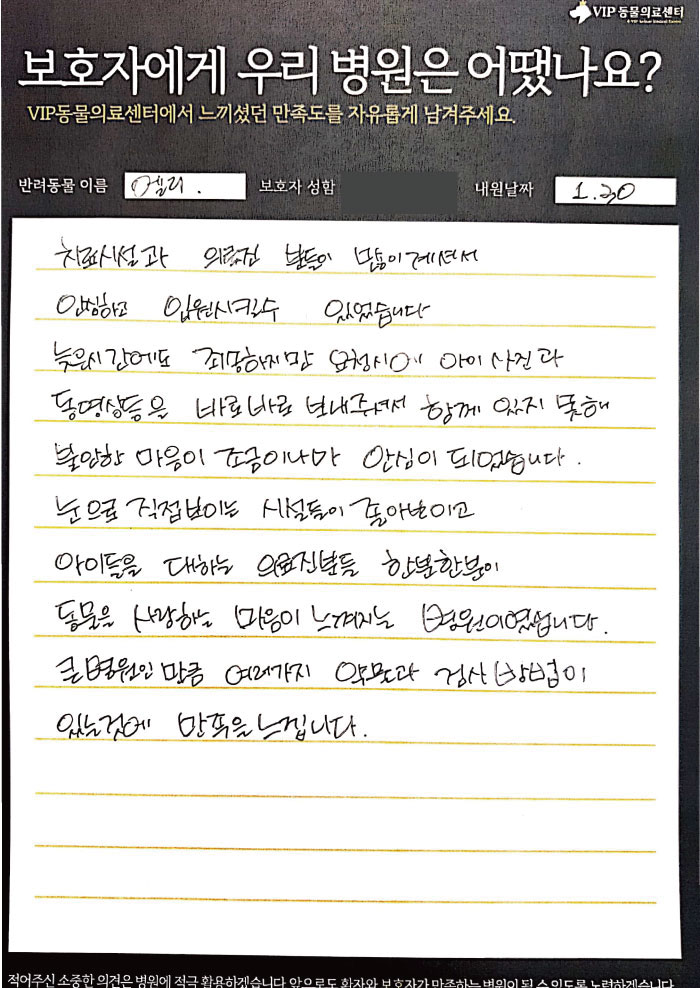 VIP 동물의료센터
보호자에게 우리 병원은 어땠나요?
VIP동물의료센터에서 느끼셨던 만족도를 자유롭게 남겨주세요.
반려동물 이름 엘리. 보호자 성함 내원날짜 1.30
치료시설과 의료진 분들이 많이계셔서
안심하고 입원시킬수 있었습니다
늦은시간에도 죄송하지만 요청시에 아이 사진과
동영상등을 바로바로 보내주셔서 함께 있지 못해
불안한 마음이 조금이나마 안심이 되었습니다.
눈으로 직접보이는 시설들이 좋아보이고
아이들을 대하는 의료진분들 한분한분이
동물을 사랑하는 마음이 느껴지는 병원이였습니다.
큰병원인 만큼 여러가지 검사 방법이
있는것에 만족을느낍니다.
적어주신 소중한 의견은 병원에 적극 활용하겠습니다. 앞으로도 환자와 보호자가 만족하는 병원이 될 수 있도록 노력하겠습니다.